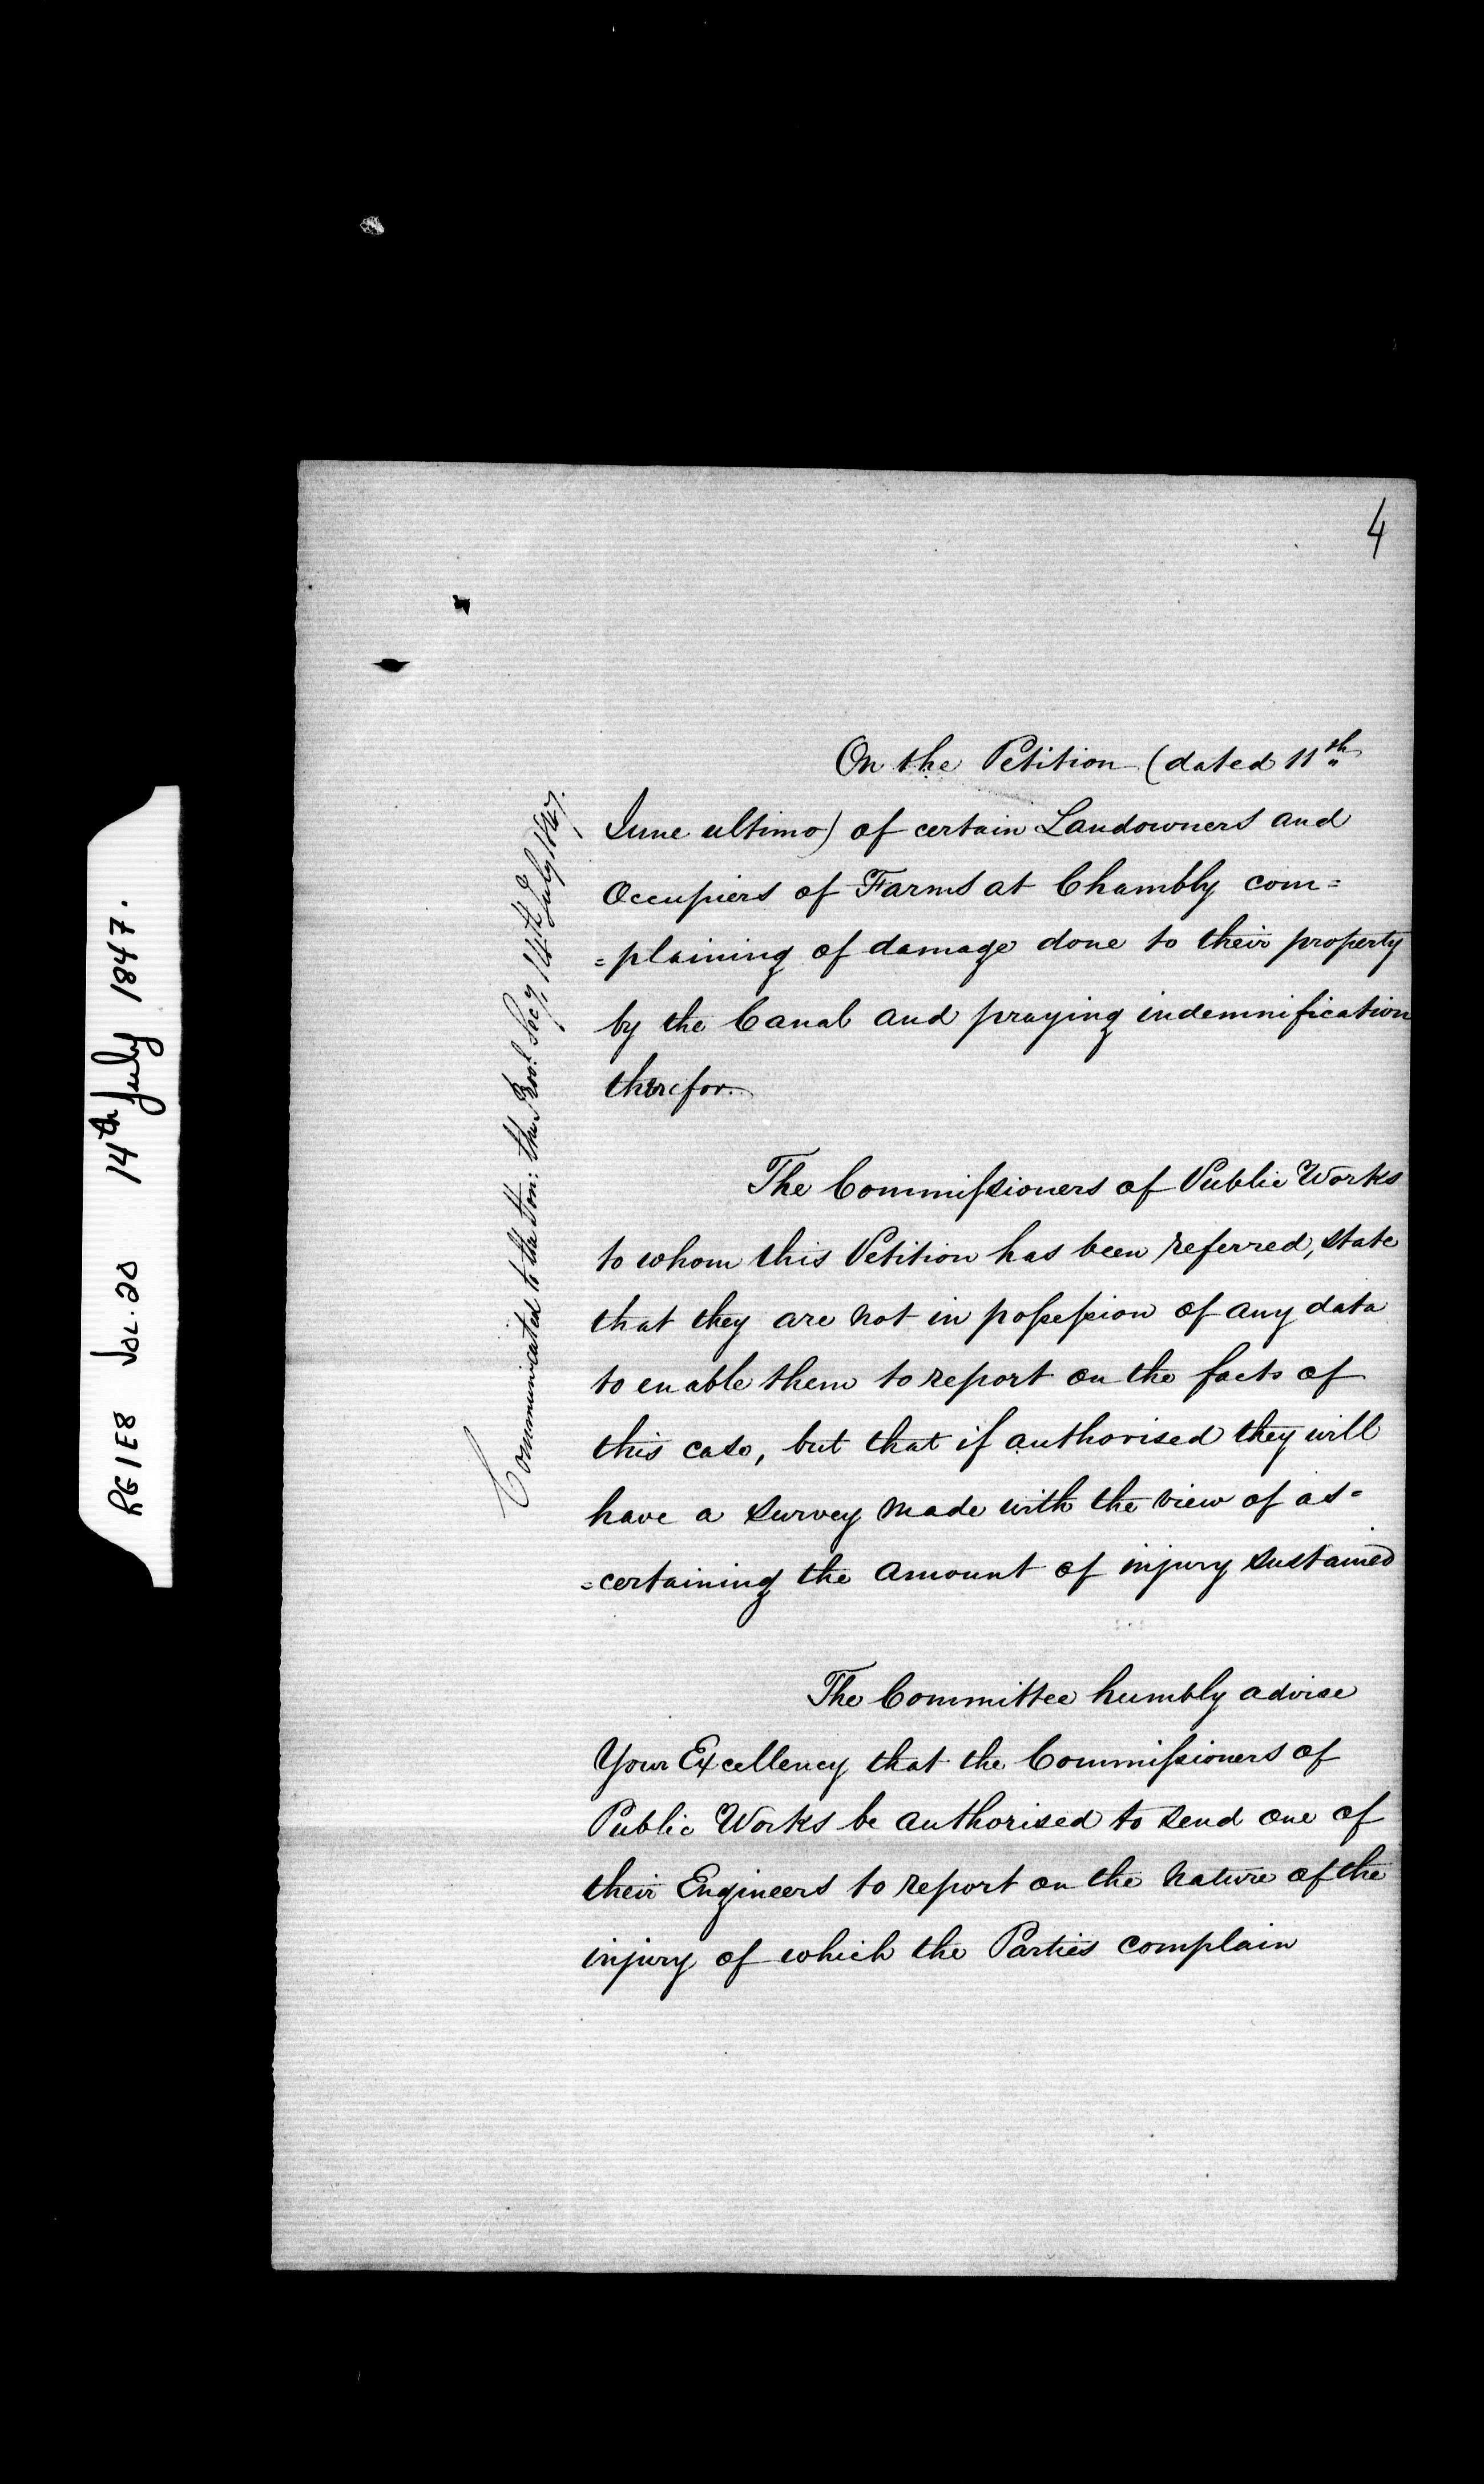 RG1E8 VOL.20 14th July 1847.
4
Communicated to the Hon: the Provl. Secy. 14th July 1847.
On the Petition (dated 11th
June ultimo) of certain Landowners and
Occupiers of Farms at Chambly com=
=plaining of damage done to their property
by the Canal and praying indemnification
therefor.
The Commissioners of Public Works
to whom this Petition has been referred, state
that they are not in possession of any data
to enable them to report on the facts of
this case, but that if authorised they will
have a survey made with the view of as=
=certaining the amount of injury sustained
The Committee humbly advise
Your Excellency that the Commissioners of
Public Works be authorised to send one of
their Engineers to report on the nature of the
injury of which the Parties complain